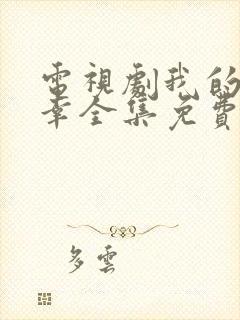 電視劇我的
幸全集免費
多雲